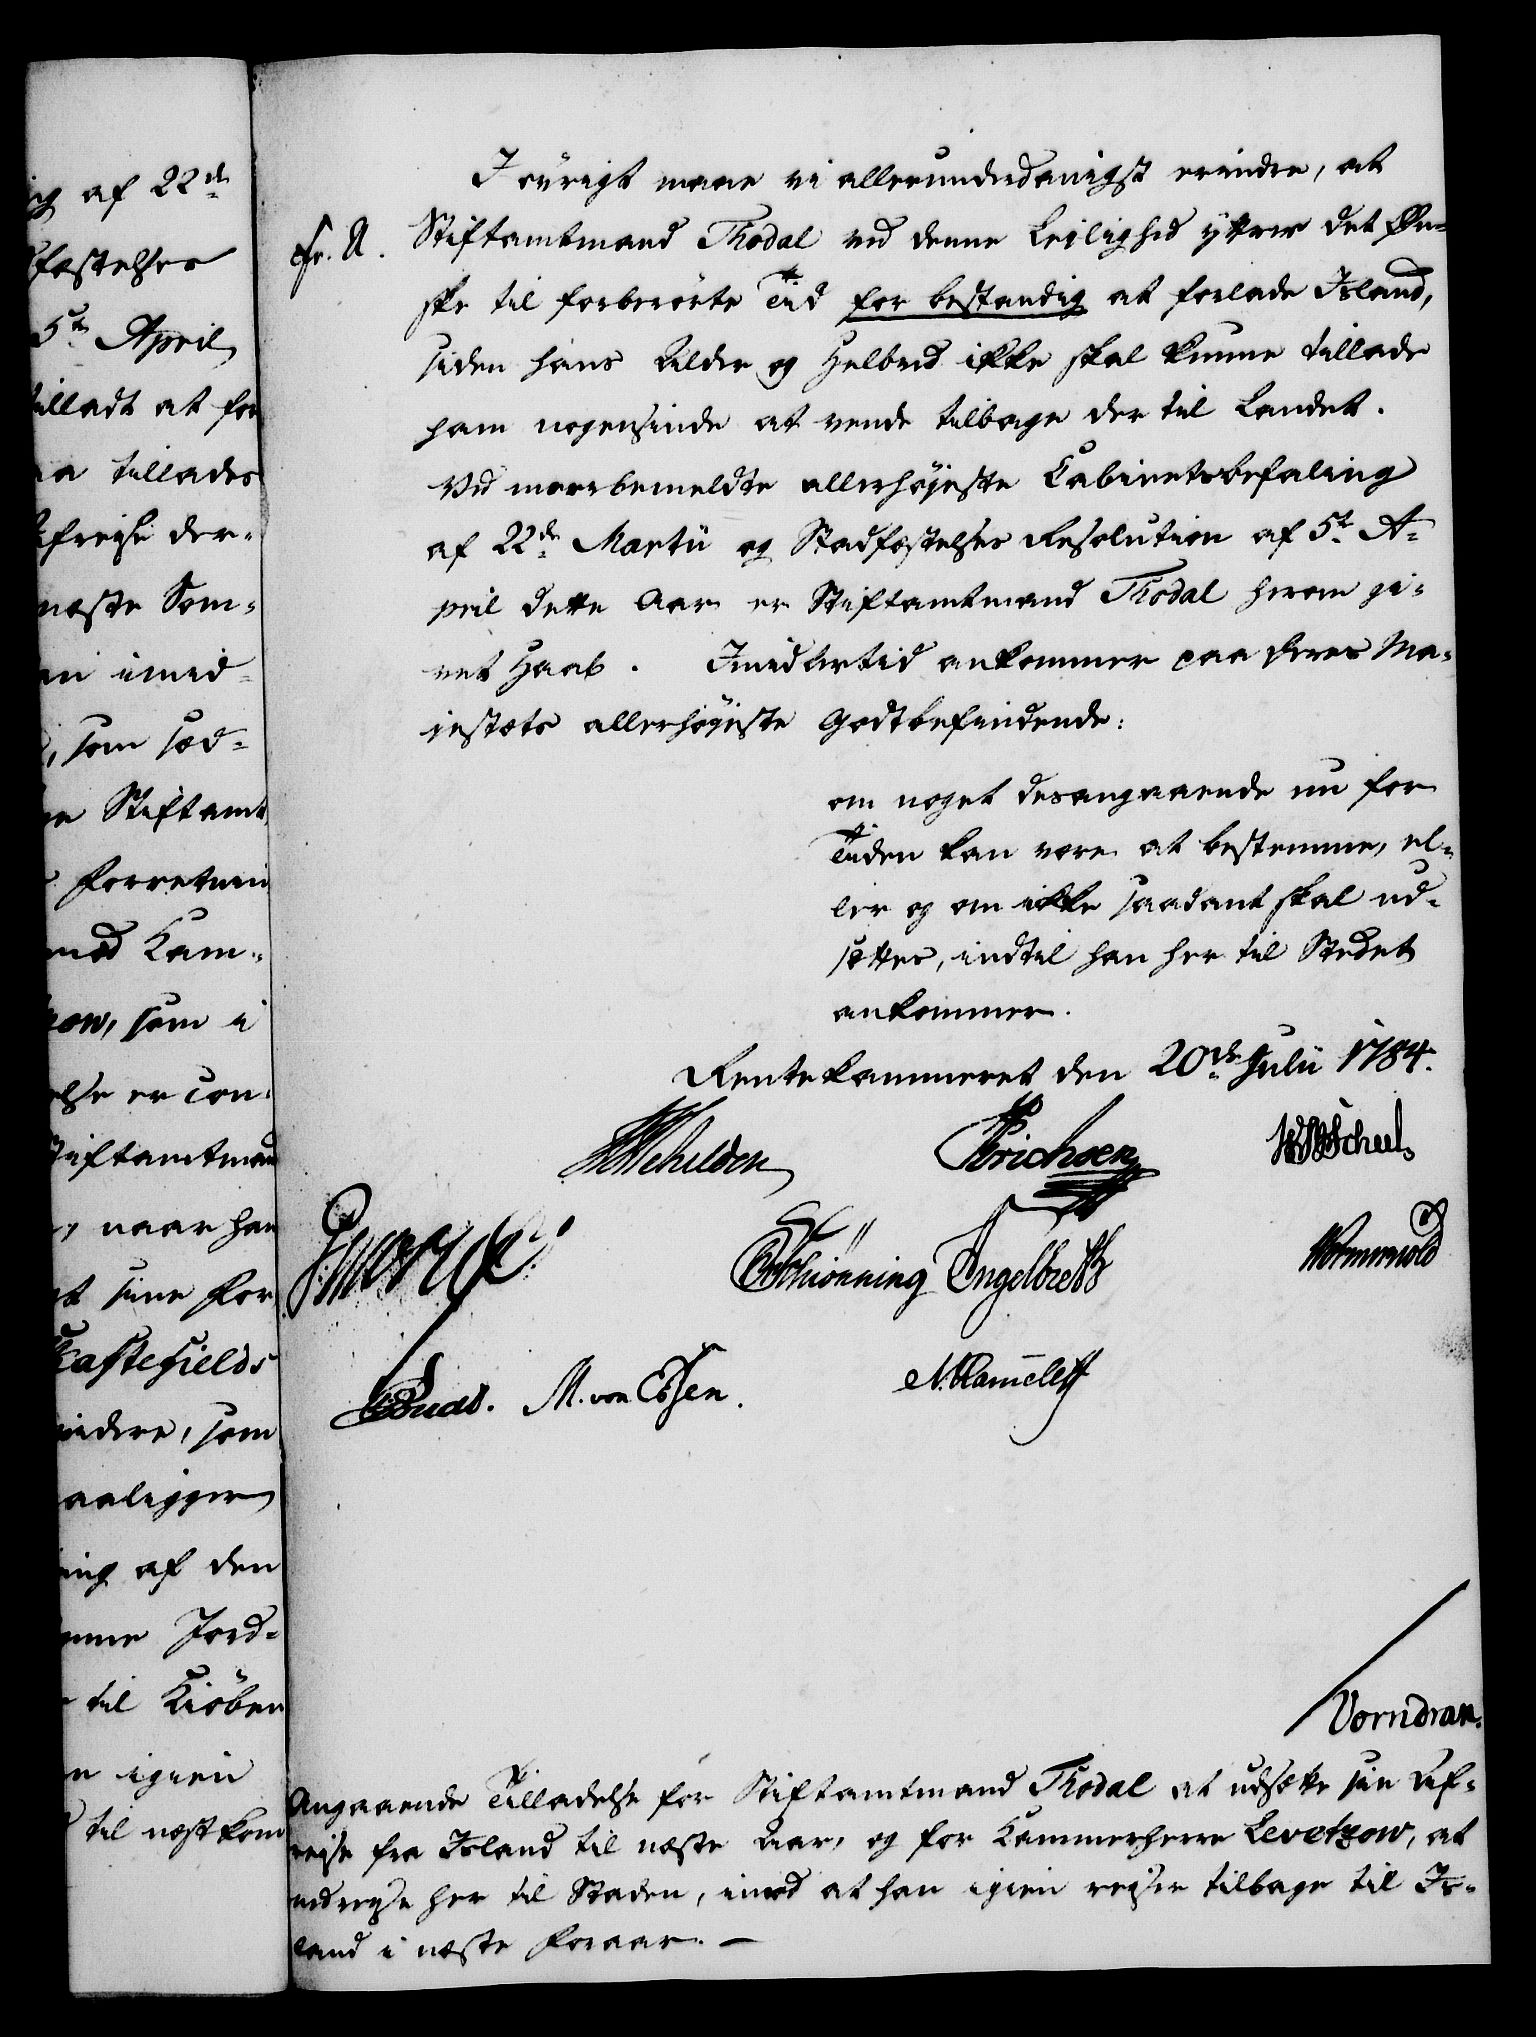 ig af 22de
fæstelses
5te April
tilladt at for
aa tillades
Afreyse der-
næste Som-
en imid-
, som sæd-
re Stiftamt
forretnin
med Kam-
zow, som i
else er con-
Stiftamtman
, naar han
at sine For
Kaftefields
mindre, som
aaligger
ing af den
mme Jord-
til Kiöben
n igien
til næstkom
I övrigt maae vi allerunderdanigst erindre, at
Fr. A. Stiftamtmand Thodal ved denne Leylighed yttrer det Øn-
ske til forberörte Tid for bestandig at forlade Island,
siden hans Alder og Helbred ikke skal kunne tillade
ham nogensinde at vende tilbage der til Landet.
Ved meerbemeldte allerhöjeste Cabinetsbefaling
af 22de Martii og Stadfæstelses Resolution af 5te A-
pril dette Aar er Stiftamtmand Thodal herom gi-
vet Haab. Imidlertid ankommer paa Deres Ma-
jestæts allerhöjeste Godtbefindende:
om noget desangaaende nu for
Tiden kan være at bestemme, el-
ler og om ikke saadant skal ud-
sættes, indtil han her til Stedet
ankommer.
Rentekammeret den 20de Julii 1784.
Erichsen
Scheel
Schiönning Engelbreth
Wormskiold
M. von Essen.
Vorndran.
Angaaende Tilladelse for Stiftamtmand Thodal at udsætte sin Af-
rejse fra Island til næste Aar, og for Kammerherre Levetzow, at
nedreyse her til Staden, imod at han igien rejser tilbage til Is-
land i næste Foraar. —